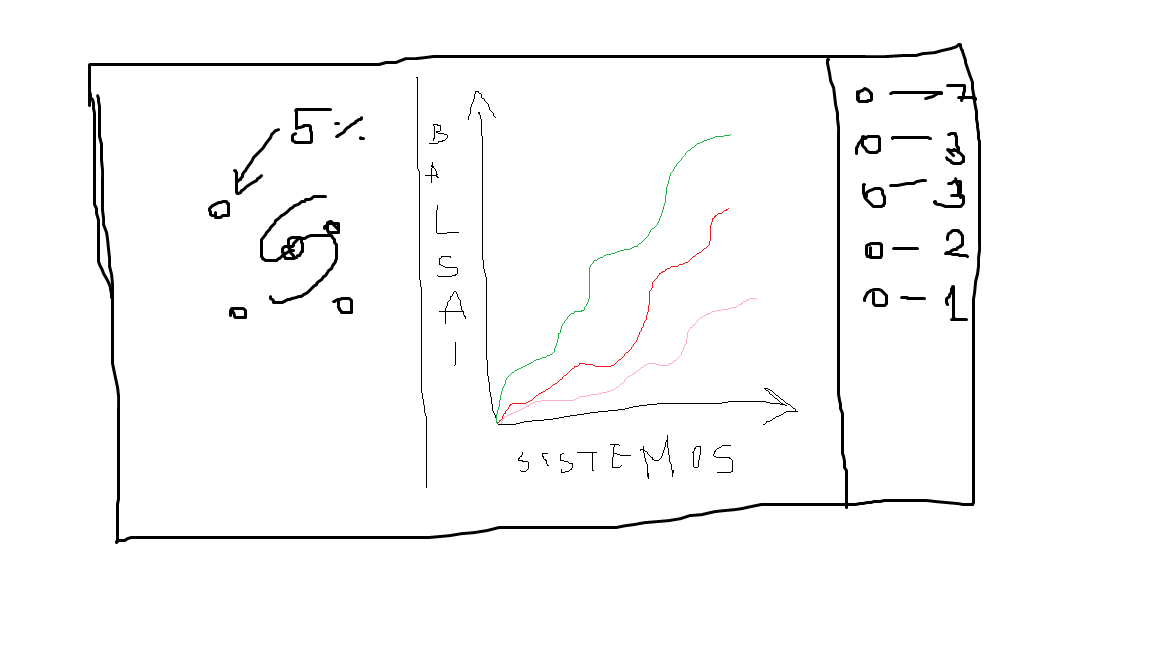 5%
BALSAI
SISTEMOS
7
3
3
2
1